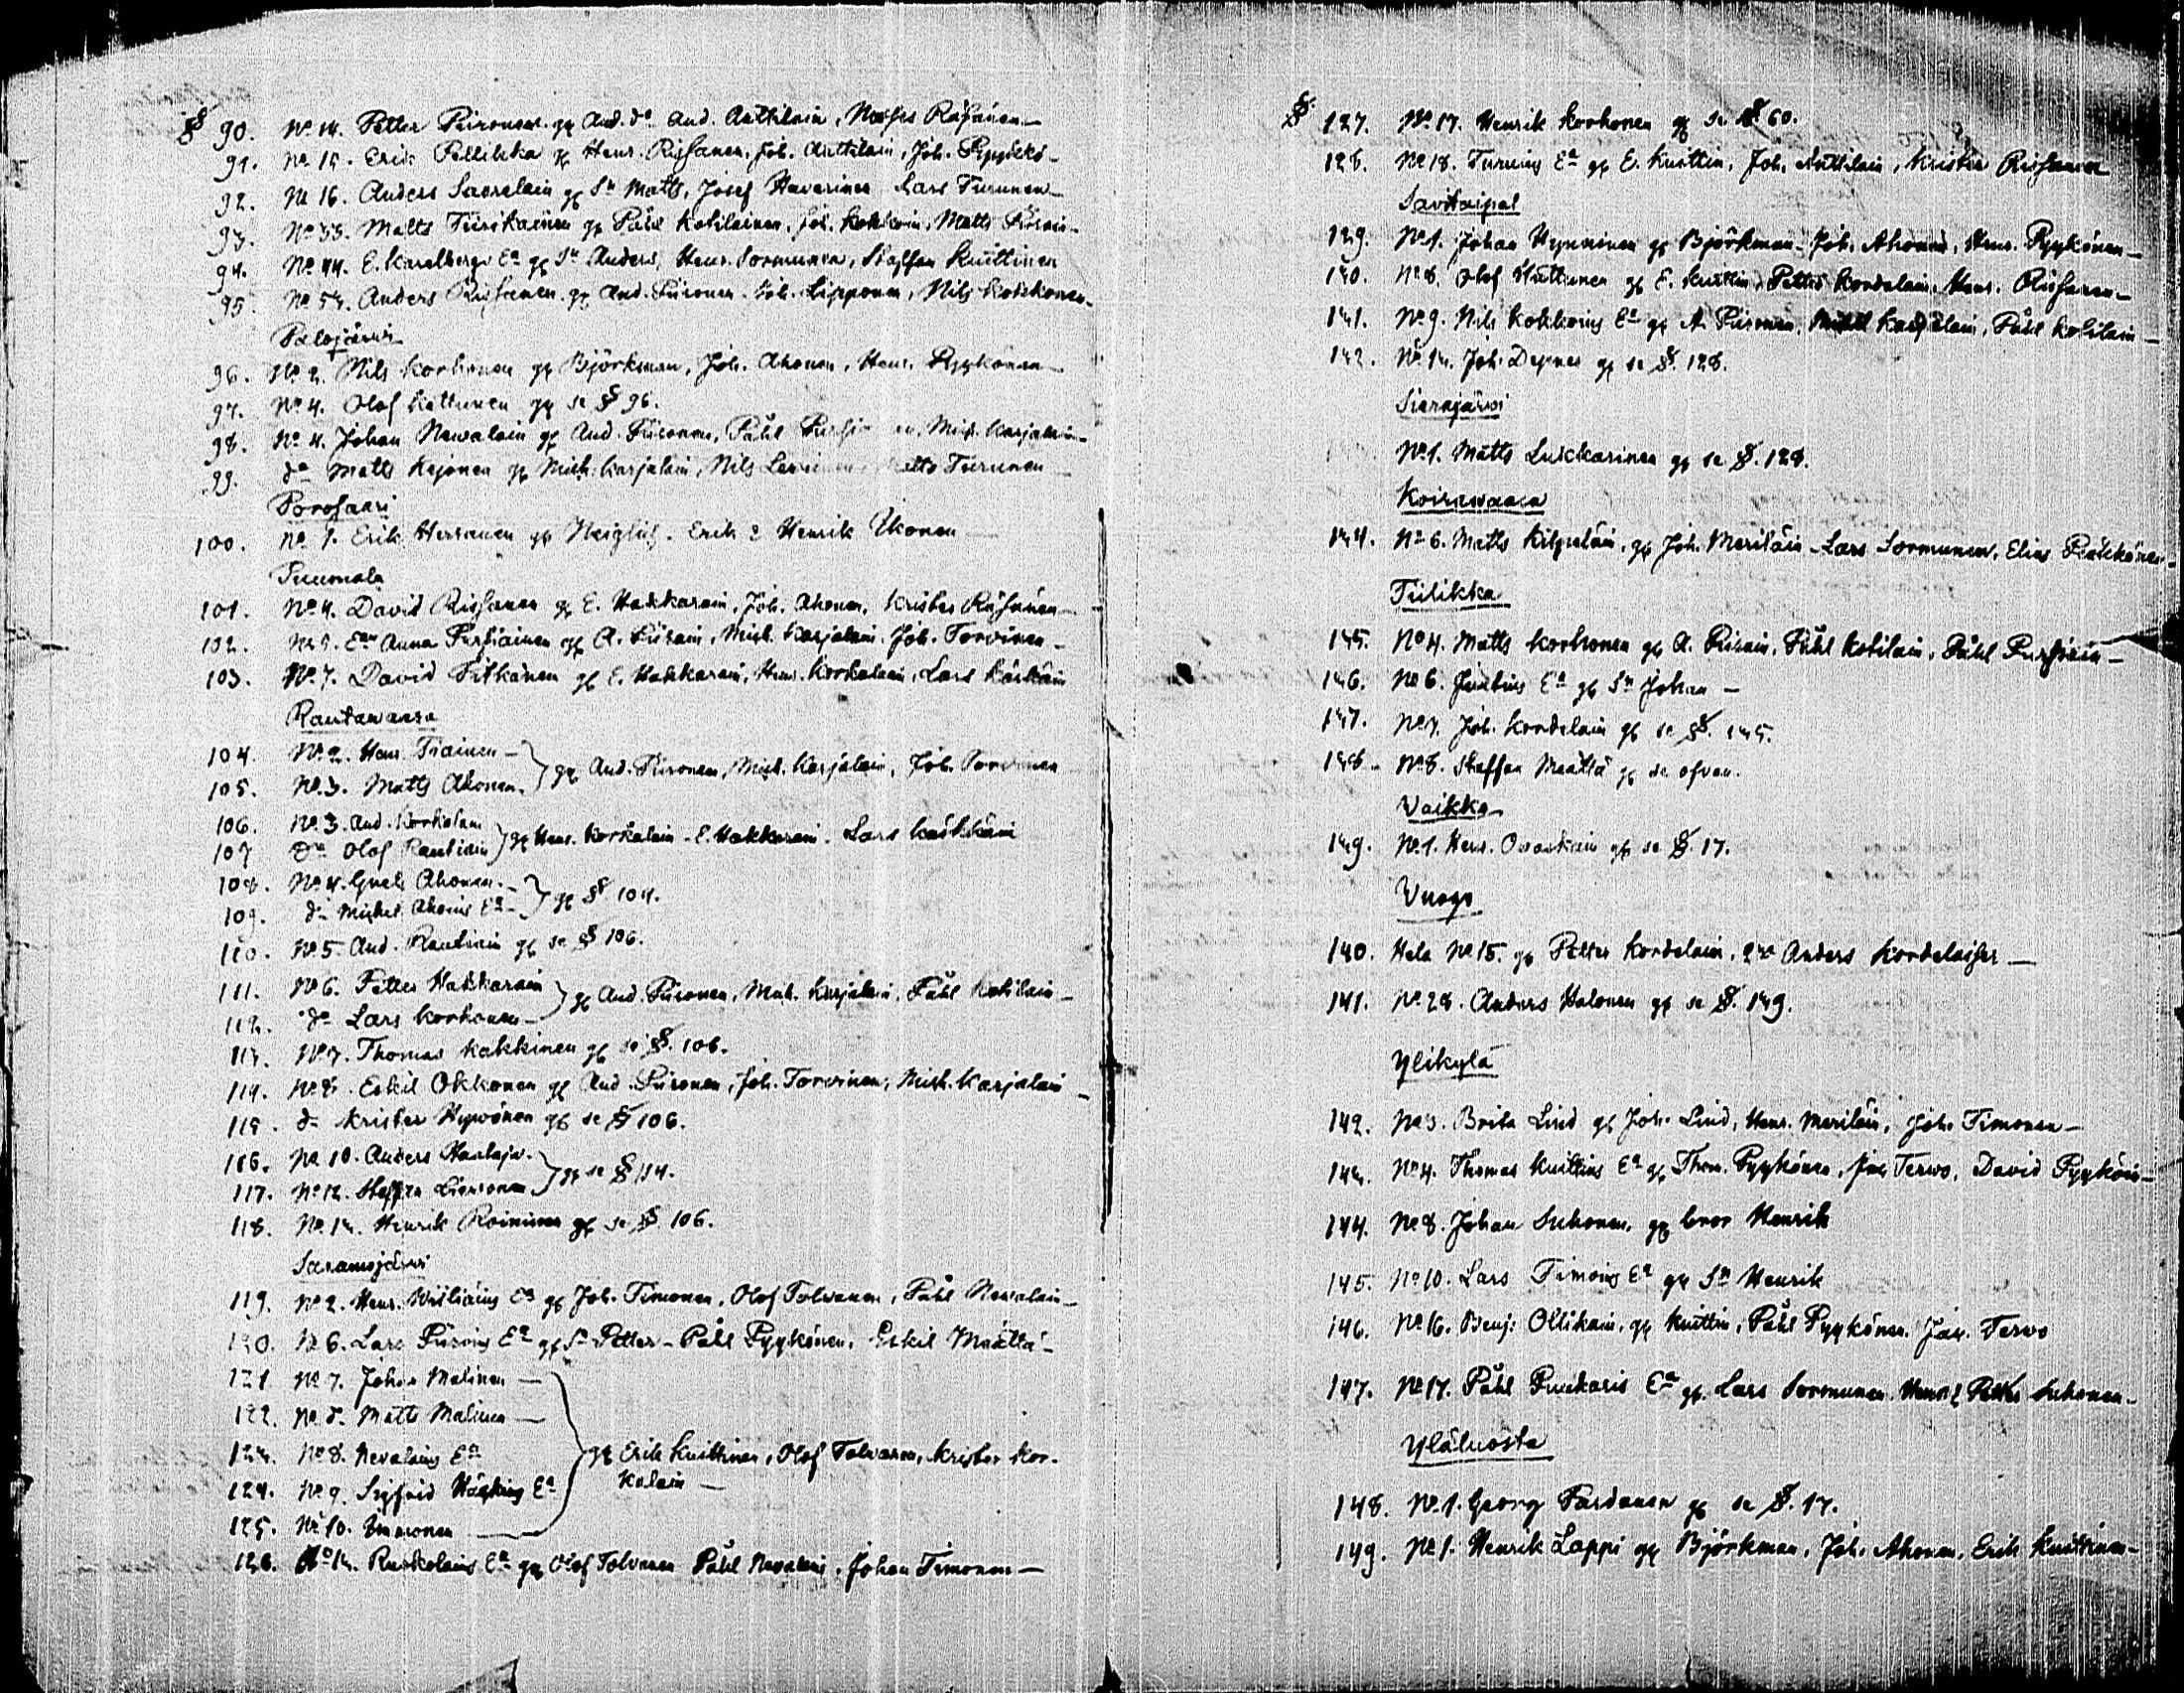 § 90. No 14. Petter Piironen gg And. do And. Anttilain, Moses Räsänen
91. No 15. Erik Pellikka gg Henr. Rissanen, Joh. Anttilain, Joh. Pyykkö
92. No 16. Anders Saarelain gg Sn Matts, Josef Haverinen Lars Turunen
93. No 33. Matts Tiirikainen gg Påhl Kohilainen, Joh. Kokkoin, Matts
94. No 44. E. Karelbergs Ea gg Sn Anders, Henr. Sormunen, Staffan Knuttinen
95. No 57. Anders Rissanen gg And. Piironen Joh. Lipponen, Nils Kokkonen
Palojärvi
96. No 2. Nils Korhonen gg Björkman, Joh. Ahonen, Henr. Pyykönen
97. No 4. Olof Kettunen gg se § 96.
98. No 4. Johan Newalain gg And. Piironen, Påhl, Mich. Karjalain
99. do Matts Kejonen gg Mich. Karjalain, Nils Matts Turunen
Porosaari
100. No 1. Erik Hersanen gg Erik & Henrik Ikonen
Puumala
101. No 4. David Rissanen gg E. Hakkarain, Joh. Ahonen, Krister Räsänen
102. No 5. Ean Anna Pursiainen gg A. Piirain, Mich. Karjalain, Joh. Torvinen
103. No 7. David Pitkänen gg E. Hakkarain, Henr. Korkalain, Lars Kärkäin
Rautawaara
104. No 2. Henr. Tiainen
105. No 3. Matts Ahonen. gg And. Piironen, Mich. Karjalain, Joh. Torvinen
106. No 3. And. Korkalain
107 do Olof Rautiain gg Henr. Korkalain - E. Hakkarain. Lars Kärkkäin
108. No 4. Ahonen.
109. do Michel Ahoins Ea gg § 104.
110. No 5. And. Rautiain gg se § 106.
111. No 6. Petter Hakkarain
112. do Lars Korhonen gg And. Piironen, Mich. Karjalain, Påhl Kohilain
113. No 7. Thomas Kakkinen gg se § 106.
114. No 8. Eskil Okkonen gg And. Piironen, Joh. Torvinen, Mich. Karjalain
115. do Krister Hyvönen gg se § 106.
116. No 10. Anders Haataja.
117. No 12. Staffan gg se § 114.
118. No 13. Henrik Roininen gg se § 106.
Saramojärvi
119. No 2. Henr. Ea gg Joh. Timonen, Olof Tolvanen, Påhl Nevalain
120. No 6. Lars Piiroins Ea gg Sn Petter - Påhl Pyykönen, Eskil Määttä
121. No 7. Johan Malinen
122. No do Matts Malinen
123. No 8. Nevalains Ea gg Erik Knuttinen, Olof Tolvanen, Krister Kor-
124. No 9. Sigfrid Ea kalain
125. No 10. Immonen
126. No 13. Ruskolains Ea gg Olof Tolvanen Påhl Nevalain, Johan Timonen
§ 127. No 17. Henrik Korhonen gg se § 60.
128. No 18. Turuins Ea gg E. Knuttin, Joh. Anttilain, Krister Rissanen
Savitaipal
139. No 1. Johan Hynninen gg Björkman - Joh. Ahonen, Henr. Pyykönen
130. No 8. Olof Huttunen gg E. Knuttin, Petter Kordelain, Henr. Rissanen
131. No 9. Nils Kokkoins Ea gg A. Piironen, Karjalain, Påhl Kohilain
132. No 13. Joh. gg se § 128.
Sierajärvi
No 1. Matts Lukkarinen gg se §. 128.
Koirawaara
134. No 6. Matts Kilpeläin, gg Joh. Meriläin - Lars Sormunen, Elias
Tiilikka
135. No 4. Matts Korhonen gg A. Piirain, Påhl Kohilain, Påhl Pursiain
136. No 6. Ea gg Sn Johan
137. No 7. Joh. Kordelain gg se §. 135.
138. No 8. Staffan Määttä gg se ofvan.
Vaikko
139. No 1. Henr. Ovaskain gg se §. 17.
Vuogo
140. Hela No 15. gg Petter Kordelain, Anders Kordelain
141. No 28. Anders Halonen gg se §. 139.
Ylikylä
142. No 3. Brita Lind gg Joh. Lind, Henr. Meriläin, Joh. Timonen
143. No 4. Thomas Knuttins Ea gg Thom. Pyykönen, Jac Terwo, David Pyyköin
144. No 8. Johan Suhonen, gg bror Henrik
145. No 10. Lars Timoins Ea gg Sn Henrik
146. No 16. Benj: Ollikain, gg Knuttin, Påhl Pyykönen. Jac. Terwo
147. No 17. Påhl Puukaris Ea gg. Lars Sormunen. Henr & Petter Suhonen
Yläluosta
148. No 1. Georg Pardanen gg se §. 17.
149. No 1. Henrik Lappi gg Björkman, Joh. Ahonen, Erik Knuttinen